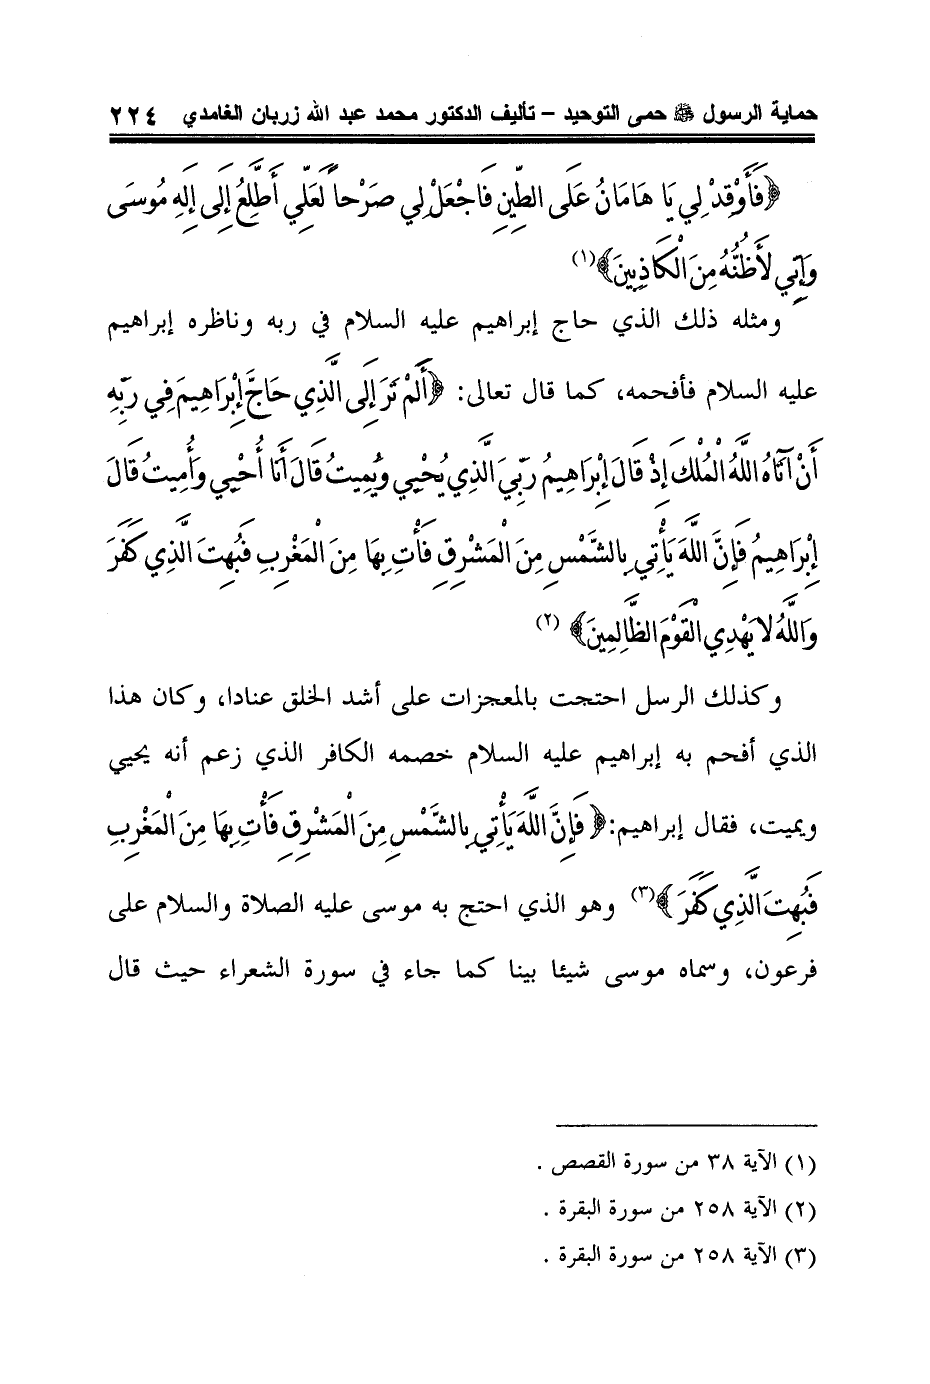 حماية الرسول ﷺ حمى التوحيد – تأليف الدكتور محمد عبد الله زربان الغامدي ٢٢٤
﴿فَأَوْقِدْ لِي يَا هَامَانُ عَلَى الطِّينِ فَاجْعَلْ لِي صَرْحاً لَعَلِّي أَطَّلِعُ إِلَى إِلَهِ مُوسَى
وَإِنِّي لَأَظُنُّهُ مِنَ الْكَاذِبِينَ﴾(١)
ومثله ذلك الذي حاج إبراهيم عليه السلام في ربه وناظره إبراهيم
عليه السلام فأفحمه، كما قال تعالى: ﴿أَلَمْ تَرَ إِلَى الَّذِي حَاجَّ إِبْرَاهِيمَ فِي رَبِّهِ
أَنْ آتَاهُ اللَّهُ الْمُلْكَ إِذْ قَالَ إِبْرَاهِيمُ رَبِّيَ الَّذِي يُحْيِي وَيُمِيتُ قَالَ أَنَا أُحْيِي وَأُمِيتُ قَالَ
إِبْرَاهِيمُ فَإِنَّ اللَّهَ يَأْتِي بِالشَّمْسِ مِنَ الْمَشْرِقِ فَأْتِ بِهَا مِنَ الْمَغْرِبِ فَبُهِتَ الَّذِي كَفَرَ
وَاللَّهُ لا يَهْدِي الْقَوْمَ الظَّالِمِينَ﴾ (٢)
وكذلك الرسل احتجت بالمعجزات على أشد الخلق عنادا، وكان هذا
الذي أفحم به إبراهيم عليه السلام خصمه الكافر الذي زعم أنه يحيي
ويميت، فقال إبراهيم:﴿فَإِنَّ اللَّهَ يَأْتِي بِالشَّمْسِ مِنَ الْمَشْرِقِ فَأْتِ بِهَا مِنَ الْمَغْرِبِ
فَبُهِتَ الَّذِي كَفَرَ﴾(٣) وهو الذي احتج به موسى عليه الصلاة والسلام على
فرعون، وسماه موسى شيئا بينا كما جاء في سورة الشعراء حيث قال
(١) الآية ٣٨ من سورة القصص .
(٢) الآية ٢٥٨ من سورة البقرة .
(٣) الآية ٢٥٨ من سورة البقرة .